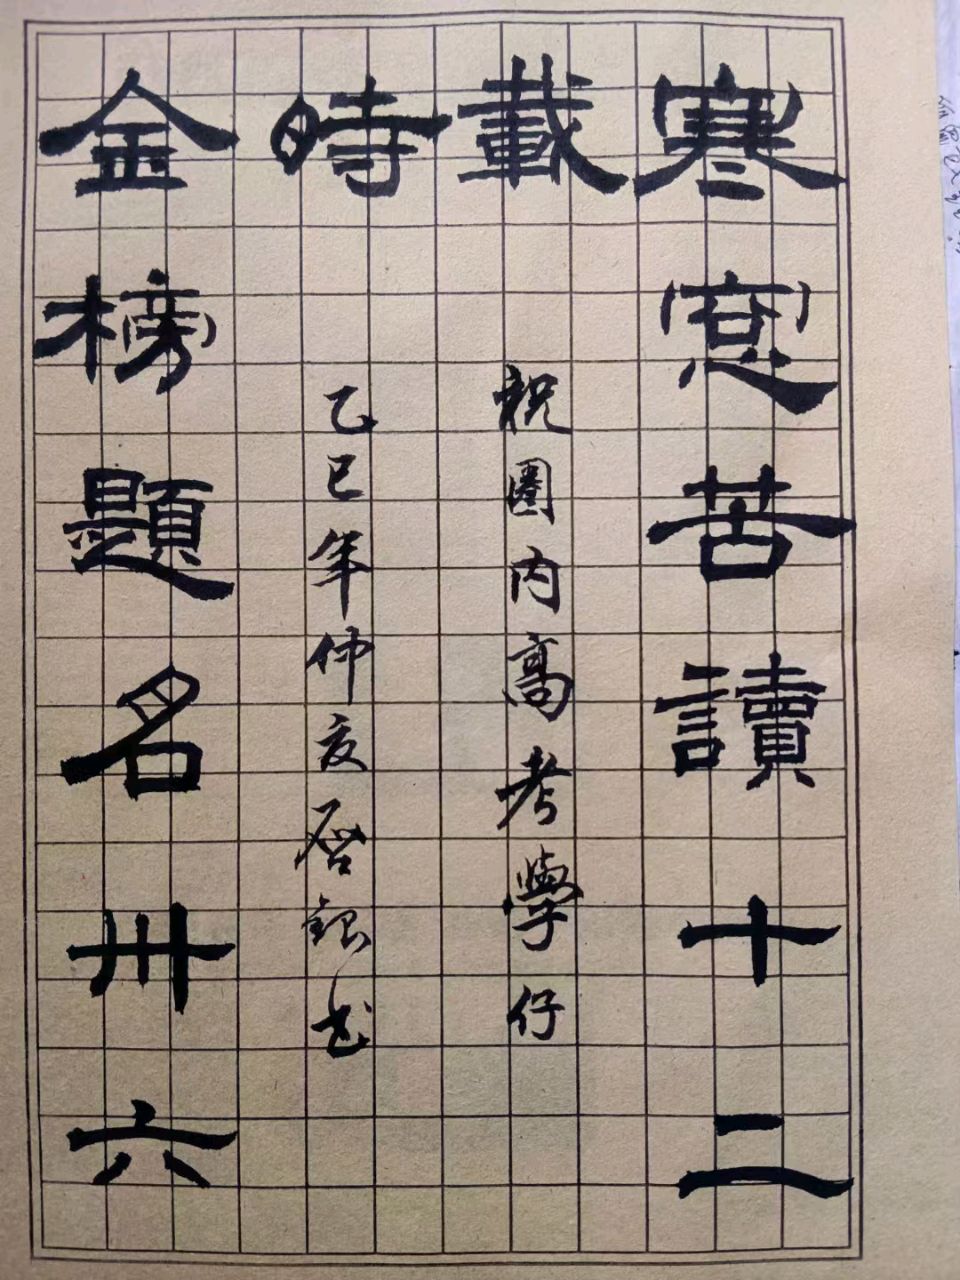 寒窓苦讀十二
載
金榜題名卅六
時
祝圈内高考學仔
乙巳年仲夏啓銀书